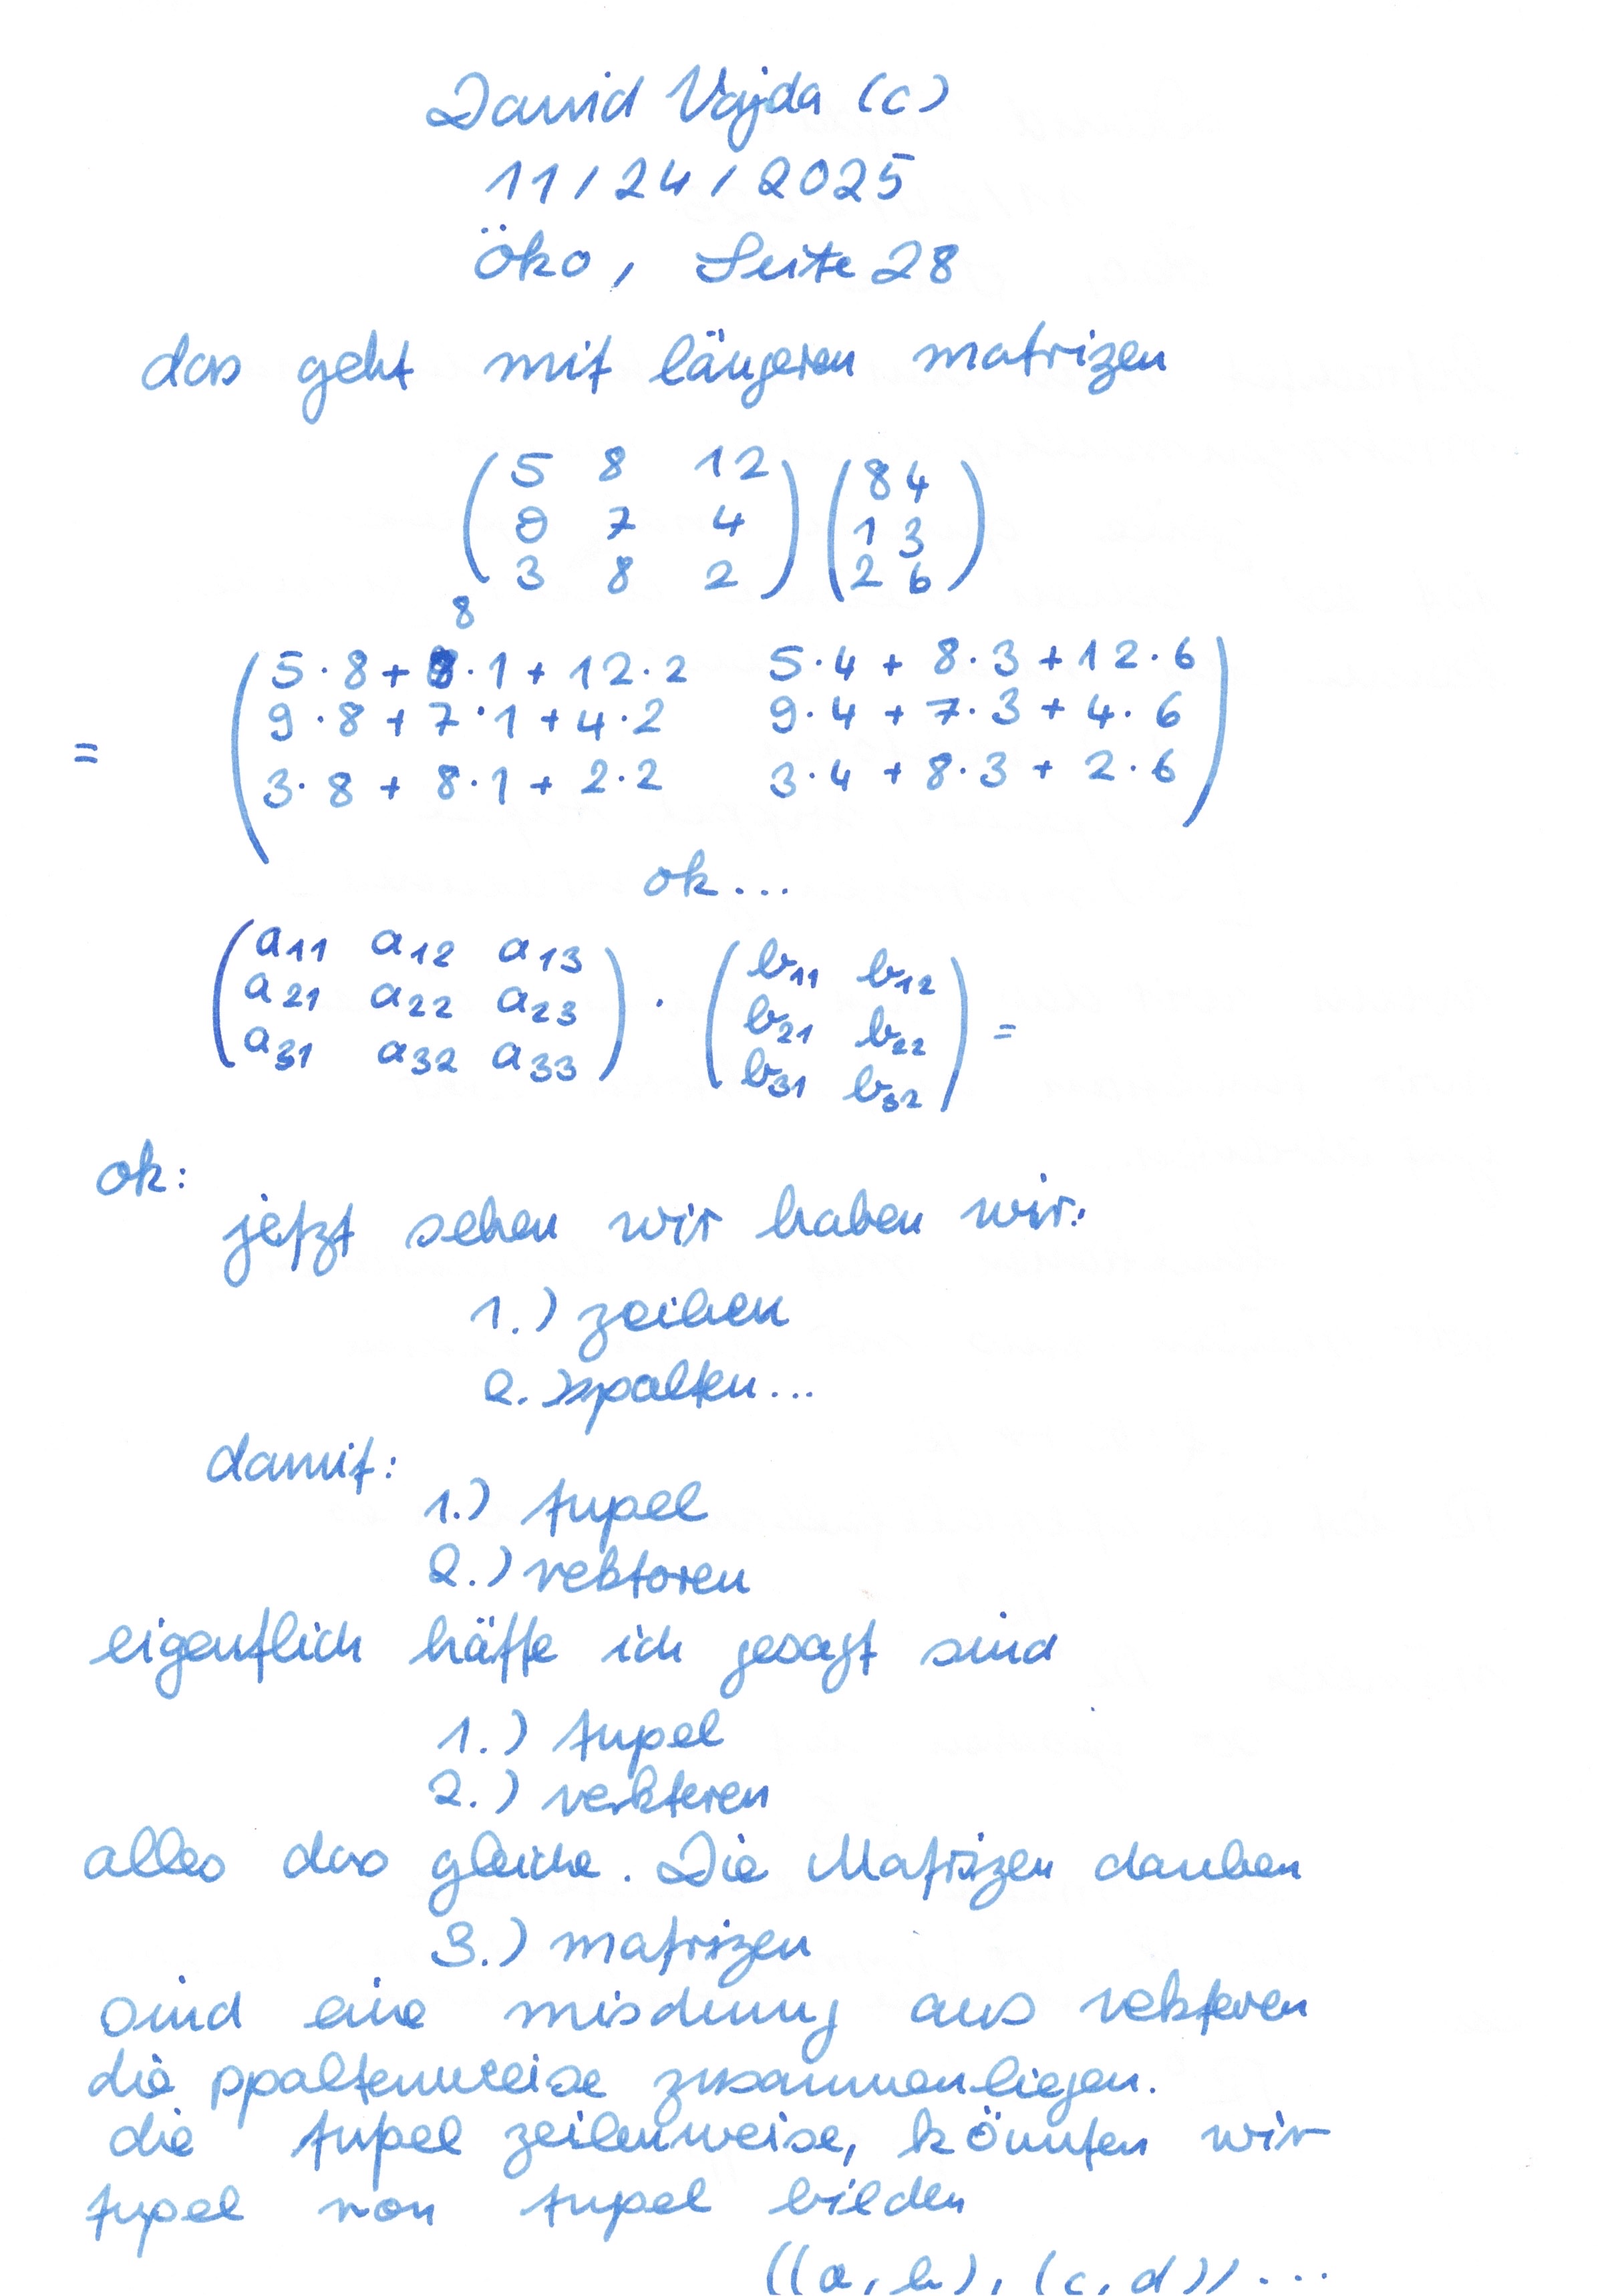 David Vajda (c)
11/24/2025
Öko, Seite 28
das geht mit längeren matrizen
( 5 8 12 ) ( 8 4 )
( 9 7 4 ) ( 1 3 )
( 3 8 2 ) ( 2 6 )
8
( 5·8 + 8·1 + 12·2   5·4 + 8·3 + 12·6 )
( 9·8 + 7·1 + 4·2   9·4 + 7·3 + 4·6 )
=
( 3·8 + 8·1 + 2·2   3·4 + 8·3 + 2·6 )
ok...
( a11 a12 a13 ) ( b11 b12 )
( a21 a22 a23 ) · ( b21 b22 ) =
( a31 a32 a33 ) ( b31 b32 )
ok:
jetzt sehen wir haben wir:
1.) zeihen
2.) spalten...
damit:
1.) tupel
2.) vektoren
eigentlich hätte ich gesagt sind
1.) tupel
2.) vekteren
alles das gleiche. Die Matrizen dauben
3.) matrizen
sind eine mischung aus vekteren
die ppaltenweise zusammenliegen.
die tupel zeilenweise, könnten wir
tupel von tupel bilden
((a, b), (c, d)) ...